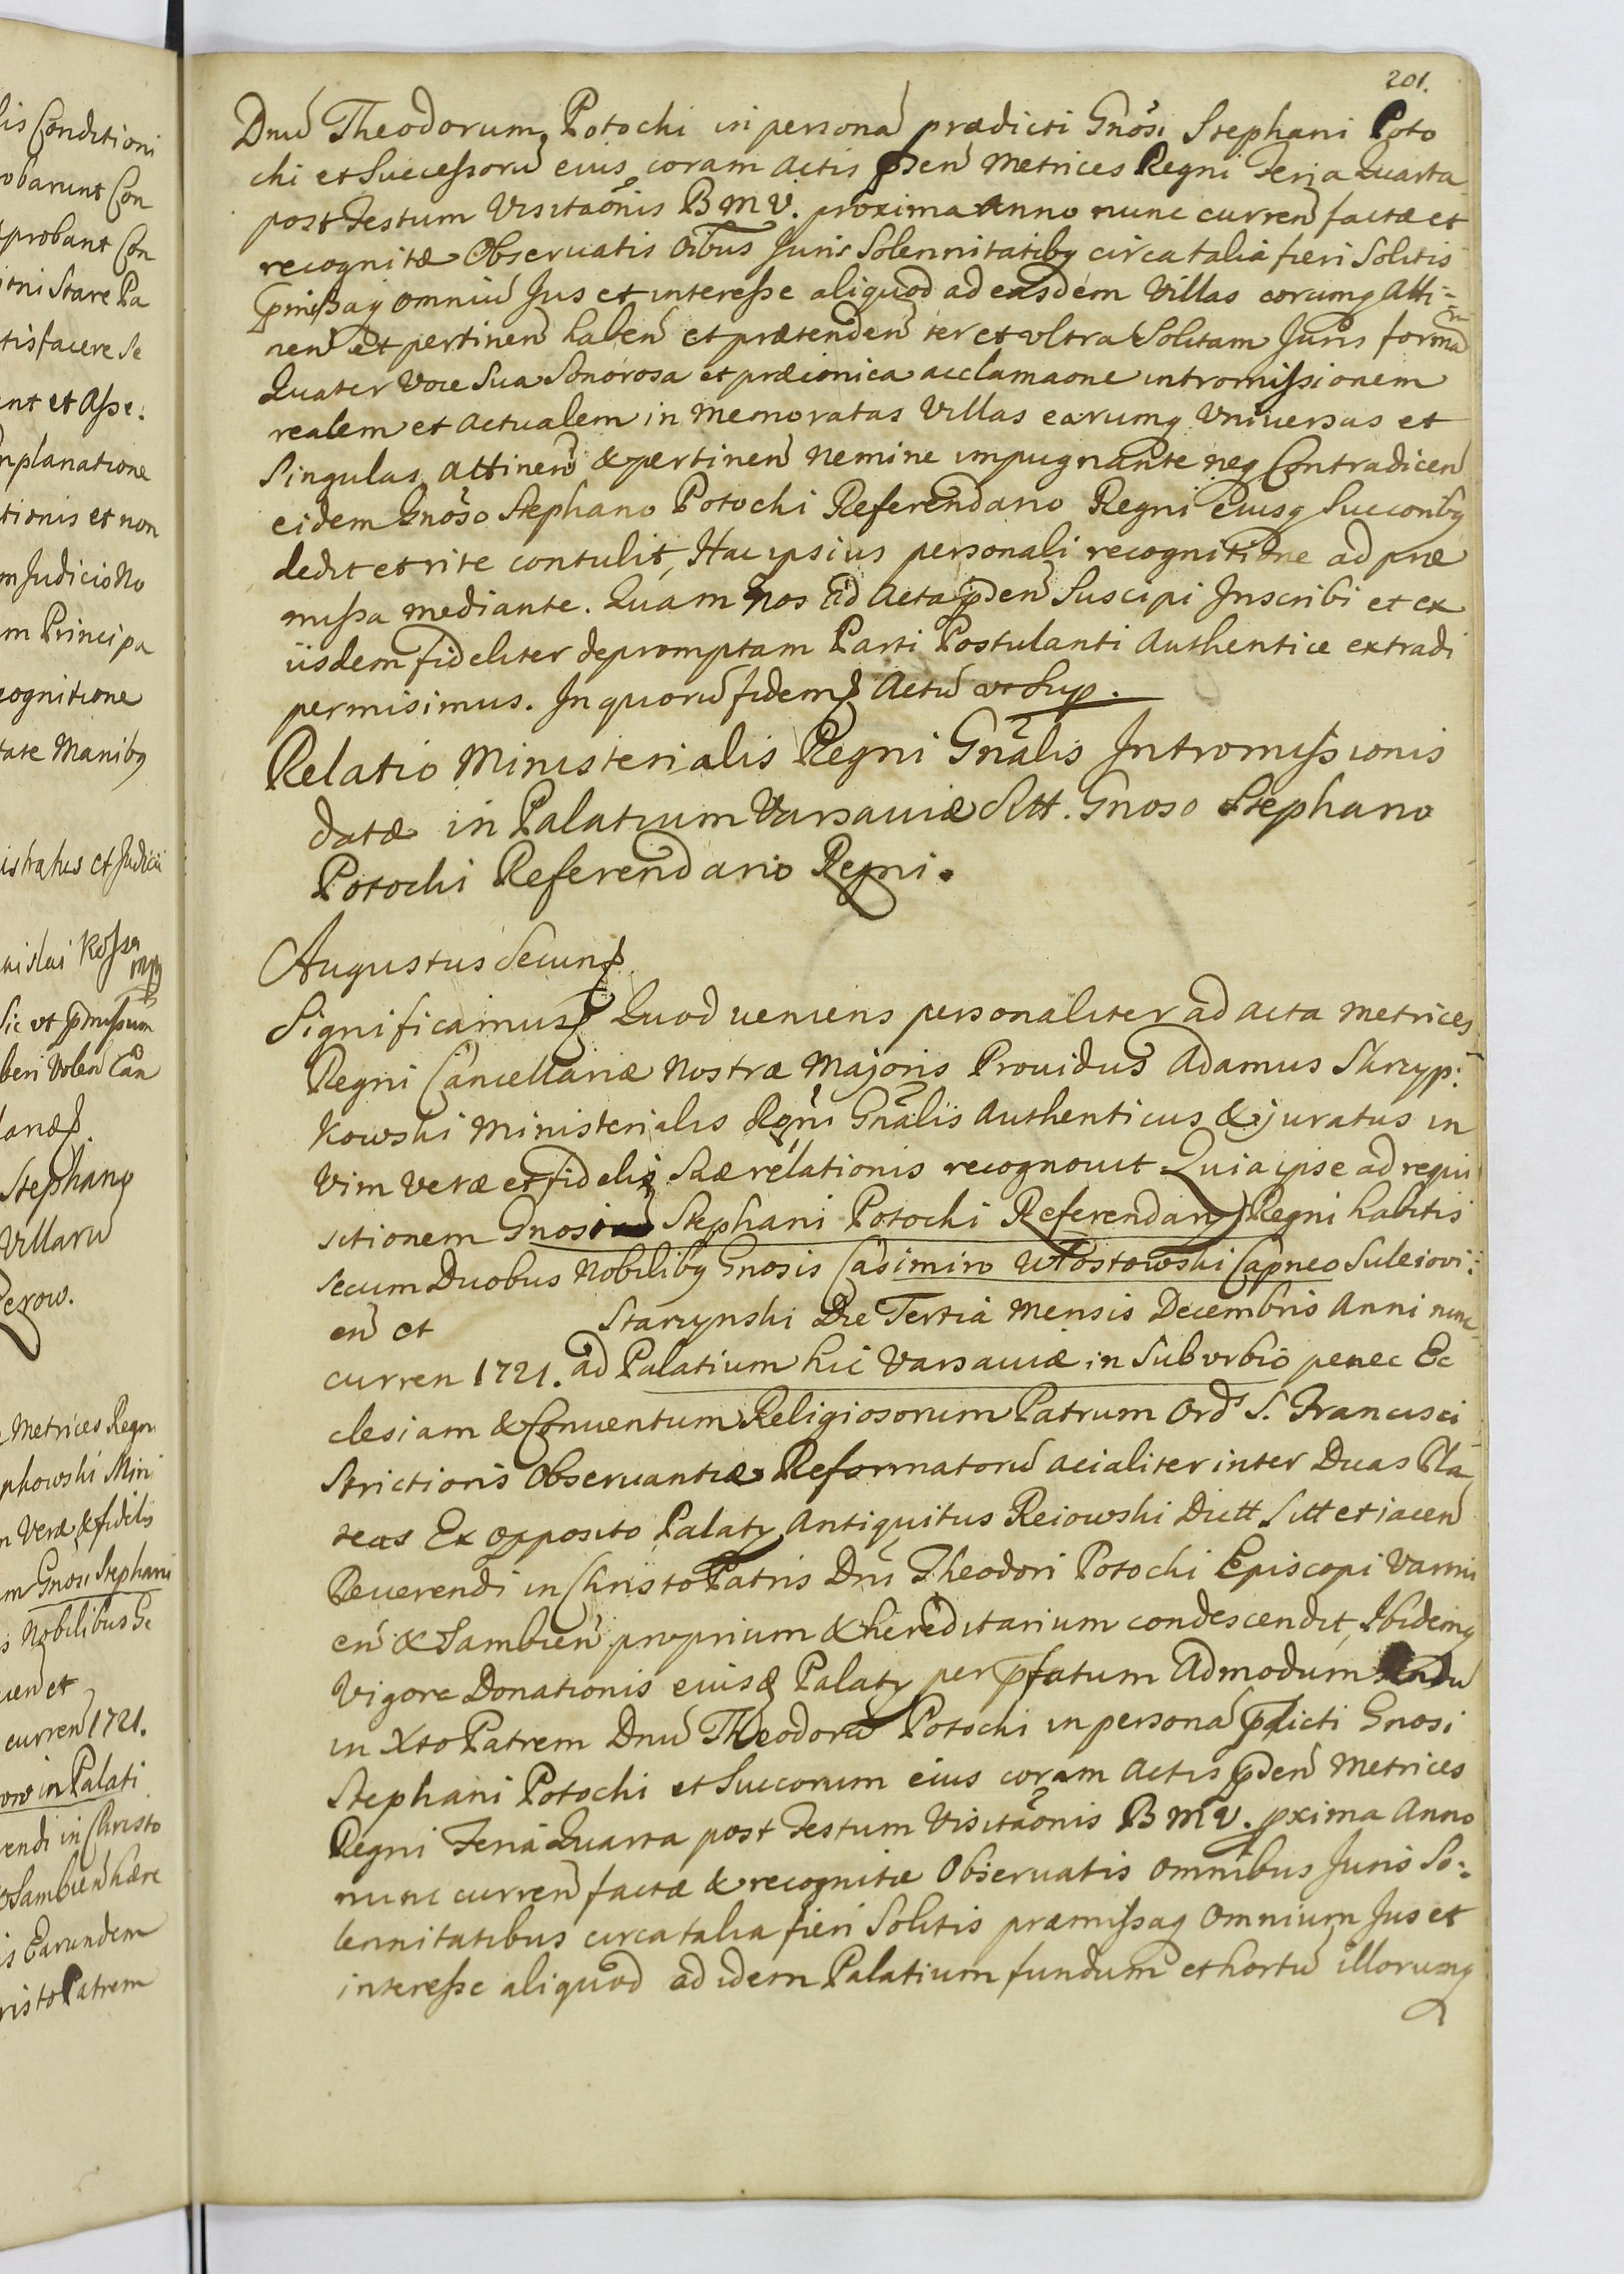 lis Conditioni
obarunt Con
probant Con
itni Stare Pa
tisfacere Se
ent et Asse.
nplanatione
tionis et non
m Judicio No
m Principa
cognitione
tate Manibq
istratus et Judicii
nislai Kossa
mpp
Sic ut pmissum
beri Volen Can
Stephanq
Villarū
Metrices Regni
pkowski Mini
n Veræ & fidelis
m Gnosi Stephani
s Nobilibus Ge
uen̄ et
curren̄ 1721.
in Palati
endi in Christo
Sambien̄ hære
is Earundem
risto Patrem
201.
Dnū Theodorum Potocki in personā prædicti Gnōsi Stephani Poto
cki et Successorū eius coram Actis pden̄ Metrices Regni Feria Quarta
post Festum Visitaōnis B M V. proxima Anno nunc curren̄ factæ et
recognitæ Observatis oībus Juris Solennitatibq circa talia fieri Solitis
pmissaq omniū Jus et interesse aliquod ad easdem Villas earumq Atti-
nen̄ et pertinen̄ haben̄ et prætenden̄ ter et ultra Solitam Juris formā
Quater Voce Sua Sonorosa et præconica acclamaone intromissionem
realem et Actualem in Memoratas Villas earumq Universas et
Singulas Attinen̄ & pertinen̄ Nemine impugnante neq Contradicen̄
eidem Gnōso Stephano Potocki Referendario Regni Eiusq Succonibq
dedit et rite contulit, Hac ipsius personali recognitione ad præ
missa mediante. Quam Nos Ad Acta pden̄ Suscipi Inscribi et ex
iisdem fideliter depromptam Parti Postulanti Authentice extradi
permisimus. In quorū fidem Actū ut Sup.
Relatio Ministerialis Regni Gn̄alis Intromissionis
datæ in Palatium Varsaviæ Sitt. Gnoso Stephano
Potocki Referendario Regni.
Augustus Secun
Significamus Quod veniens personaliter ad Acta Metrices
Regni Cancellariæ Nostræ Majoris Providus Adamus Skrzyp:
kowski Ministerialis Rgni Gn̄alis Authenticus & juratus in
Vim veræ et fidelis Suæ relationis recognovit Quia ipse ad requi
sitionem Gnosi Stephani Potocki Referendarij Regni habitis
Secum Duobus Nobilibq Gnosis Casimiro Wtostowski Capneo Suleiovi:
en̄ et Starzynski Die Tertia Mensis Decembris Anni nunc
curren 1721. ad Palatium hic Varsaviæ in Suburbio penec Ec
clesiam & Conventum Religiosorum Patrum Ord. S. Francisci
Strictioris Observantiæ Reformatorū acialiter inter Duas Pla
teas Ex opposito Palaty Antiquitus Reiowski Dictt Sitt et iacen̄
Reverendi in Christo Patris Dnī Theodori Potocki Episcopi Varmi
en̄ & Sambien̄ proprium & hereditarium condescendit, Ibidemq
Vigore Donationis eiusd Palaty per pfatum Admodum Rndū
in Xto Patrem Dnū Theodorū Potocki in personā pdicti Gnosi
Stephani Potocki et Succorum eius coram Actis pden̄ Metrices
Regni Feria Quarta post Festum Visitaōnis B M V. pxima Anno
nunc curren̄ factæ & recognitæ Observatis Omnibus Juris So:
lennitatibus circa talia fieri Solitis præmissaq Omnium Jus et
interesse aliquod ad idem Palatium fundum et hortū illorumq